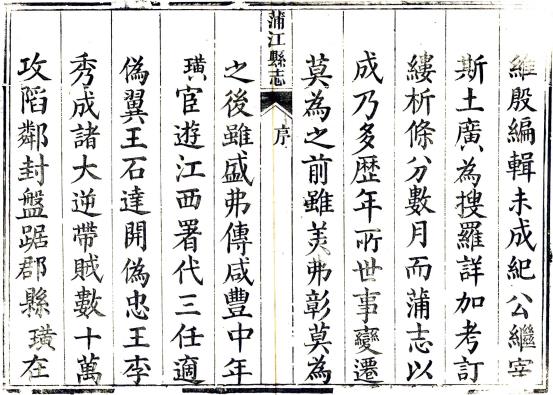 維殷編輯未成紀公繼宰
斯土廣為搜羅詳加考訂
縷析條分數月而蒲志以
成乃多歷年所世事變遷
莫為之前雖美弗彰莫為
蒲江縣志
序
之後雖盛弗傳咸豐中年
璜宦遊江西署代三任適
偽翼王石達開偽忠王李
秀成諸大逆帶賊數十萬
攻陷鄰封盤踞郡縣璜在